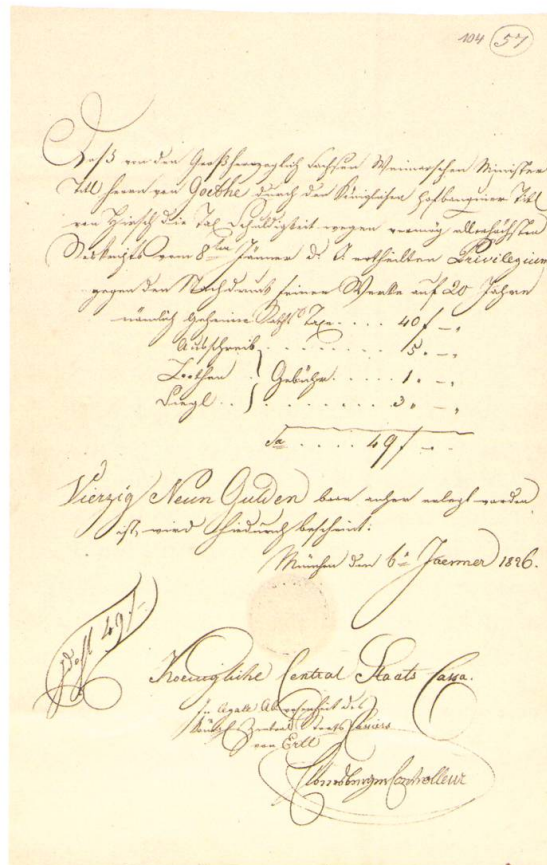 104 57
Daß von den Großherzoglich Sachsen Weimarschen Minister
Titl Herrn von Goethe durch den Königlichen Hofbanquier Titl
von Hirsch die Tax Schuldigkeit wegen vermög allerhöchsten
Rescripts vom 8ten Jänner d. J. ertheilten Privilegium
gegen den Nachdruck seiner Werke auf 20 Jahre
nämlich Geheime Raths Taxe .... 40 f –„
........ 5. –„
Bothen } Gebühr ..... 1. –„
Siegl .. } ....... 3. –„
Sa .... 49 f –„
Vierzig Neun Gulden baar anher erlegt worden
ist, wird hiedurch bescheint.
München den 6n Jaenner 1826.
49 f –
Koenigliche Central Staats Cassa.
In Abwesenheit des
Königl. Central Staats Cassiers
von Ertl
Controlleur